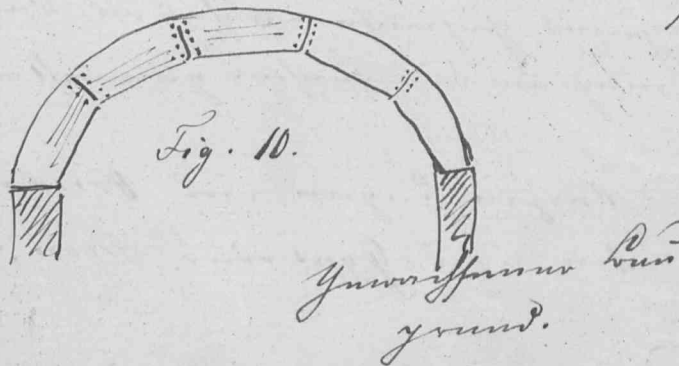 Fig. 10.
Gewachsener Bau
grund.